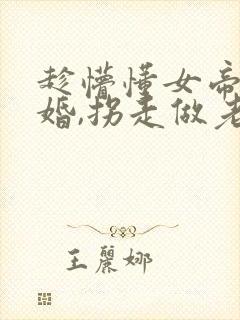 趁懵懂女帝
婚,拐走做老
王麗娜